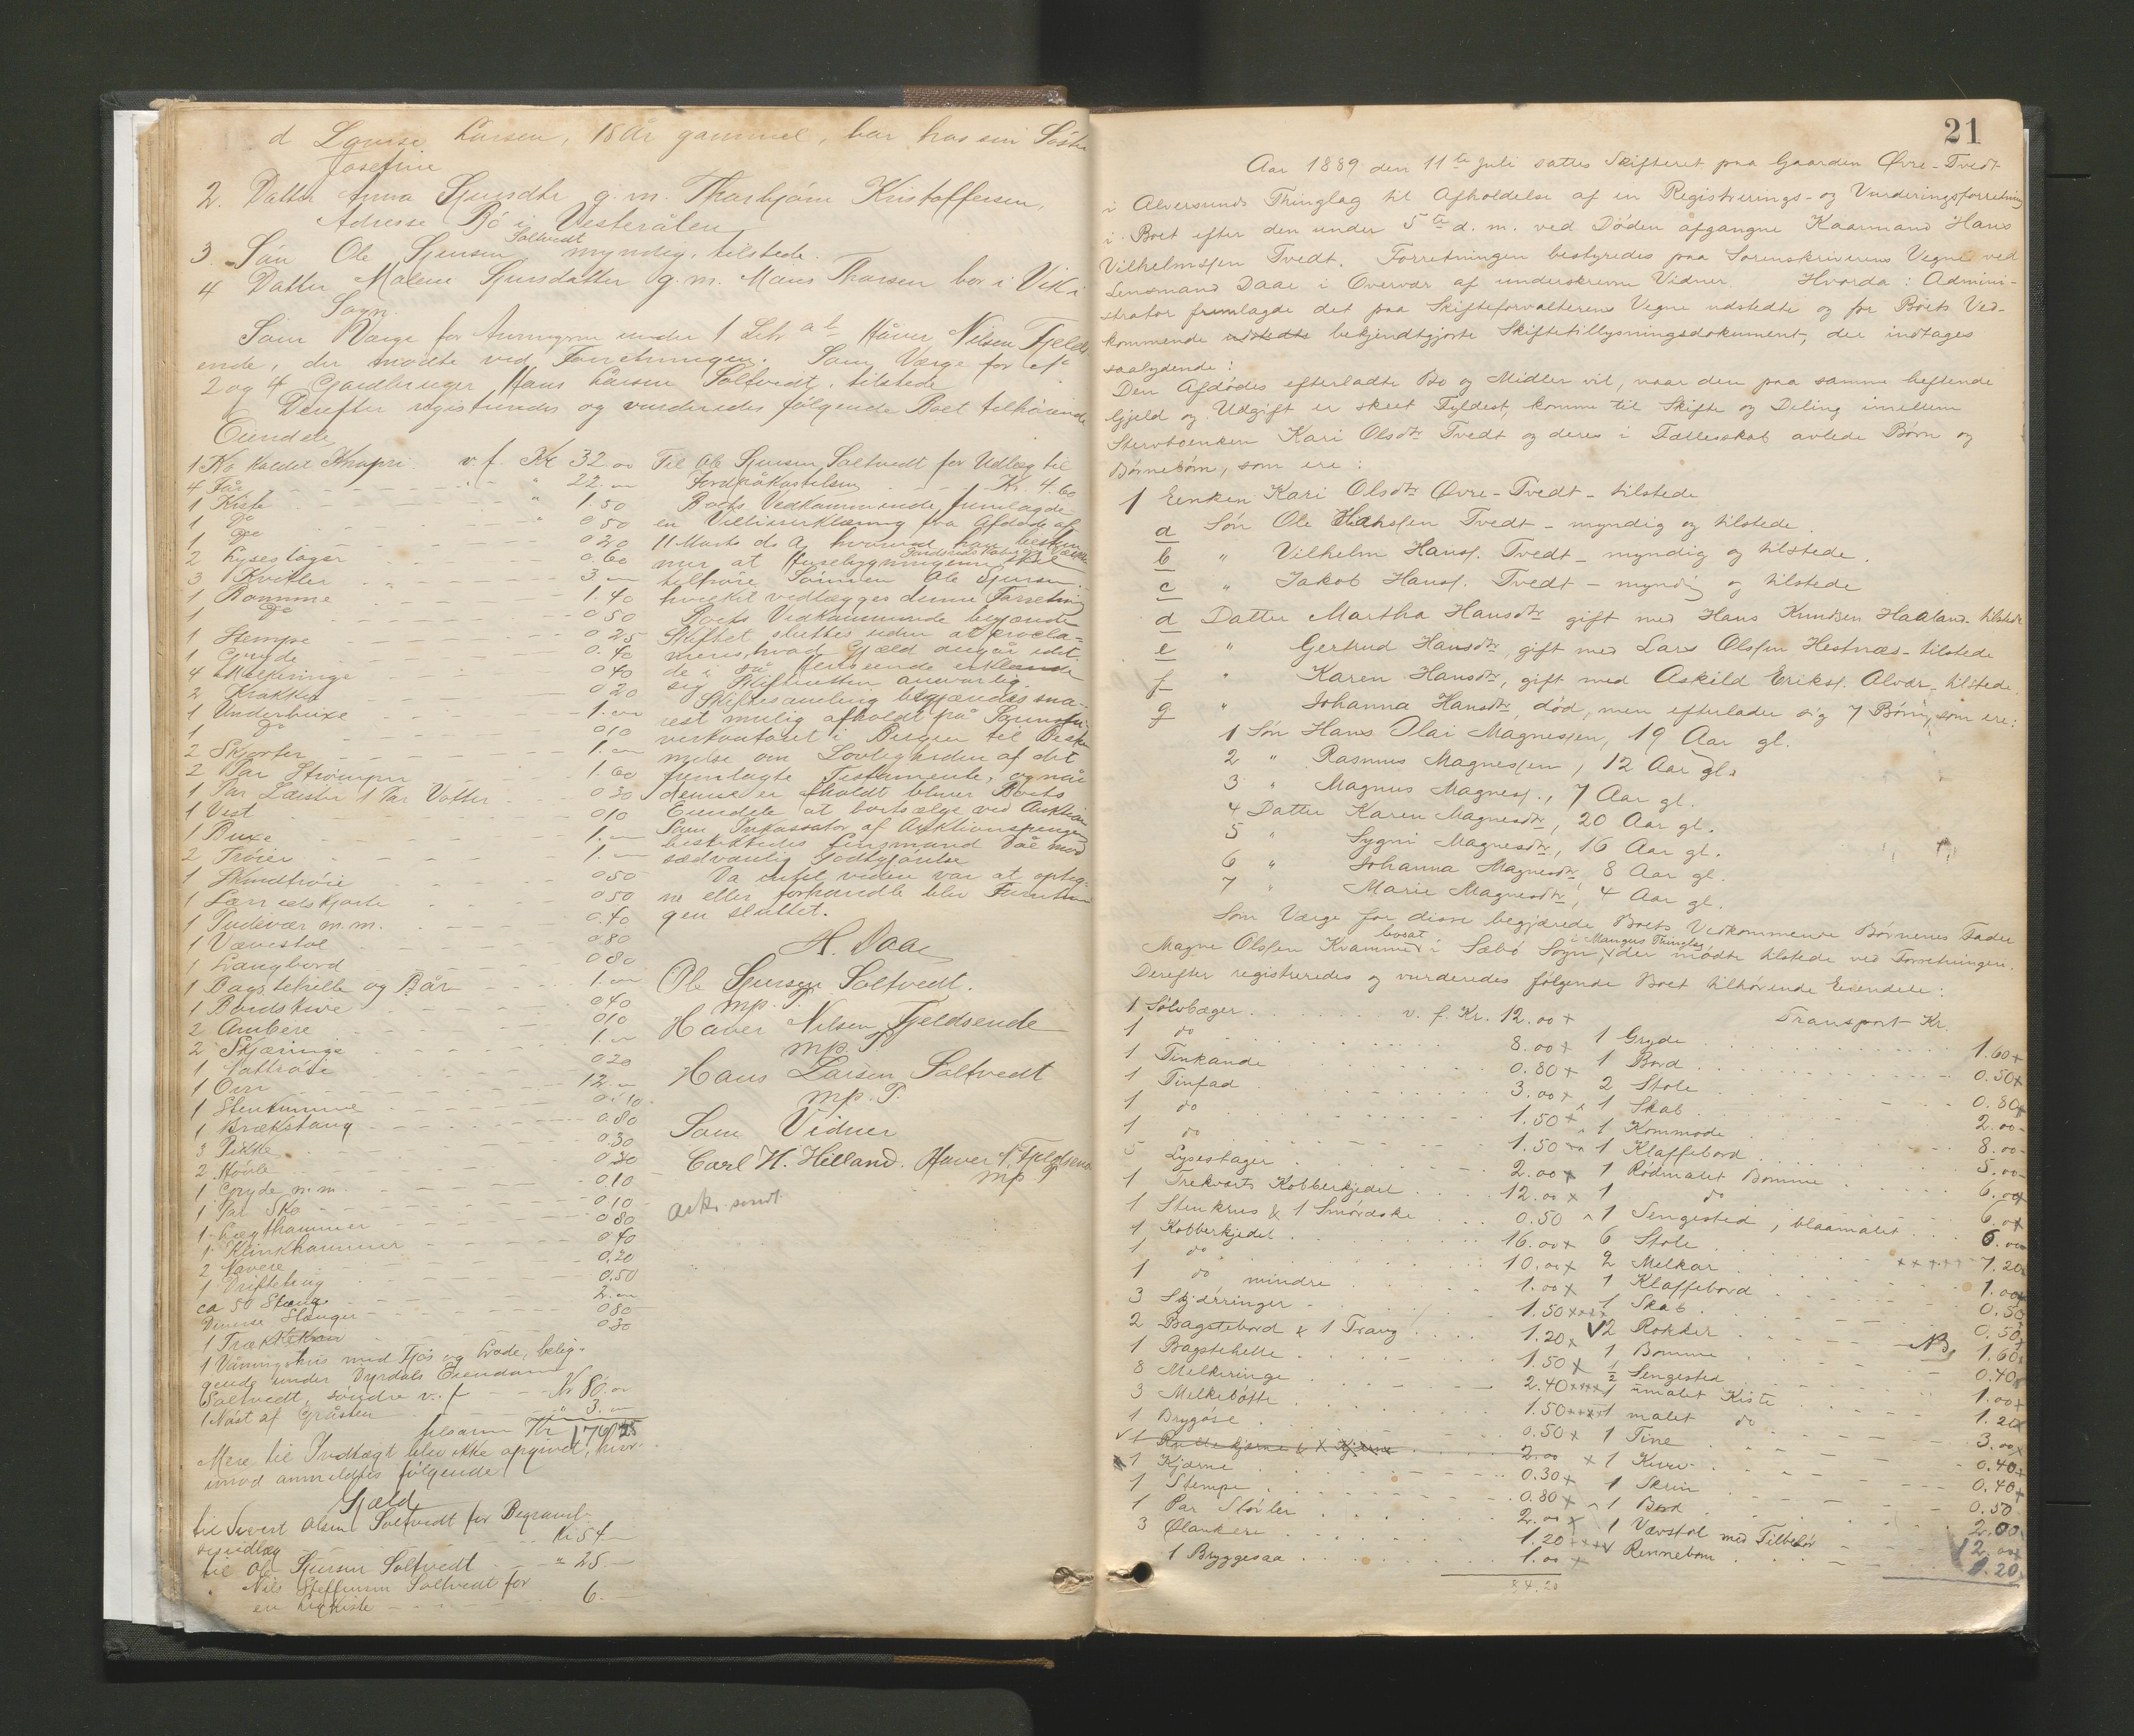 d Lovise Larsen, 18 År gammel, bor hos sin Søster
Josefine
2. Datter Anna Sjursdtr g. m. Thorbjørn Kristoffersen,
Adresse Bø i Vesterålen
3. Søn Ole Sjursen Soltvedt myndig, tilstede.
4 Datter Malene Sjursdatter g. m. Mons Thorsen bor i Vik i
Sogn.
Som Værge for Arvingerne under 1 Litr a-d Håver Nilsen Fjelds
ende, der mødte ved Forretningen. Som Værge for No
2 og 4 Gardbruger Hans Larsen Soltvedt, tilstede
Derefter registreredes og vurderedes følgende Boet tilhørende
Eiendele
1 Ko kaldet v. f. Kr 32.00
4 Får " " 22.
1 Kiste " 1.50
1 Do " 0 50
1 Do 0 20
2 Lysestager 0.60
3 3.
1 Bomme 1.40
1 Do 0 50
1 Stempe 0 25
1 Gryde 0.40
4 Melkeringe 0 40
2 Krakker 0 20
1 Underbuxe 1.
1 Do 0 10
2 Skjorter 1.
2 Par Strømper 1.60
1 Par Læster 1 Par Votter 0 30
1 Vest 0 10
1 Buxe 1.
2 Trøier 1.
1 Skindtrøie 0 50
1 Lærredskjorte 0 50
1 Pudevær m.m. 0.40
1 Vævestol 0 80
1 Langbord 0 80
1 Bagstehelle og Bår 1.
1 Bordskive 0 40
2 Ambere 0 10
2 Skjæringe 1.
1 Nattrøie 0 20
1 Ovn 12.
1 Stentrumme 0.10
1 Brækstang 0.80
3 Pikke 0.30
2 0 30
1 Gryde m.m. 0.10
1 Par Sko 0.10
1 Lægthammer 0 80
1 Klinkhammer 0 40
2 Navere 0.20
1 Driftetrug 0.50
ca 50 2.
Diverse Stænger 0 80
1 0 30
1 Våningshus med Fjøs og Løde, belig-
gende under Dyrdals Eiendom
Soltvedt, søndre v. f. Kr 80.00
1 Nøst af Gråsten " 3.
tilsammen Kr 176.25
Mere til Indtægt blev ikke opgivet, hvor-
imod anmeldtes følgende
Gjæld
til Sivert Olsen Soltvedt for Begravel-
sesudlæg Kr 54
til Ole Sjursen Soltvedt " 25.
Nils Steffensen Soltvedt for
en Ligkiste 6.
Til Ole Sjursen Soltvedt for Udlæg til
Jordpåkastelsen Kr. 4.60
Boets Vedkommende fremlagde
en Villieserklæring fra Afdøde af
11 Marts d. A. hvorved han bestem-
mer at Husebygningerne skal
tilhøre Sønnen Ole Sjursen.
hvilket vedlægges denne Forretning
Boets Vedkommende begjærede
Skiftet sluttet uden at procla-
meres, hvad Gjæld angår idet
de i så Henseende erklærede
sig Skifteretten ansvarlig.
Skiftesamling begjæredes sna-
rest mulig afholdt på Sorenskri-
verkontoret i Bergen til Bestem
melse om Lovligheden af det
fremlagte Testamente, og når
denne er afholdt bliver Boets
Eiendele at bortsælge ved Auktion
Som Inkassator af Auktionspengene
bestilledes Lensmand Dåe mod
sædvanlig Godtgjørelse
Da intet videre var at opteg-
ne eller forhandle blev Forretnin
gen sluttet.
H. Daae
Ole Sjursen Soltvedt.
mp. P.
Haver Nilsen Fjeldsende
mp P
Hans Larsen Soltvedt
mp. P.
Som Vidner
Carl H. Helland. Haver N. Fjeldsende
mp P
21
Aar 1889 den 11te Juli sattes Skifteret paa Gaarden Øvre-Tvedt
i Alversunds Thinglag til Afholdelse af en Registrerings- og Vurderingsforretning
i Boet efter den under 5te d. m. ved Døden afgangne Kaarmand Hans
Vilhelmssen Tvedt. Forretningen bestyredes paa Sorenskriverens Vegne ved
Lensmand Daae i Overvær af underskrevne Vidner Hvorda: Admini-
strator fremlagde det paa Skifteforvalterens Vegne udstedte og for Boets Ved-
kommende udstedte bekjendtgjorte Skiftetillysningsdokument, der indtages
saalydende:
Den Afdødes efterladte Bo og Midler vil, naar den paa samme heftende
Gjeld og Udgift er skeet Fyldest, komme til Skifte og Deling imellem
Stervboenken Kari Olsdtr Tvedt og deres i Fællesskab avlede Børn og
Børnebørn, som ere:
1 Enken Kari Olsdtr Øvre-Tvedt - tilstede
a Søn Ole Hanssen Tvedt - myndig og tilstede.
b " Vilhelm Hanss. Tvedt - myndig og tilstede.
c " Jakob Hanss. Tvedt - myndig og tilstede
d Datter Martha Hansdtr gift med Hans Knudsen Haaland - tilstede
e " Gertrud Hansdtr, gift med Lars Olssen Hestnæs - tilstede
f " Karen Hansdtr, gift med Askild Eriks. Alvær - tilstede.
g " Johanna Hansdtr, død, men efterlader sig 7 Børn, som ere:
1 Søn Hans Olai Magnessen, 19 Aar gl.
2 " Rasmus Magnessen, 12 Aar gl.
3 " Magnus Magness., 7 Aar gl.
4 Datter Karen Magnesdtr, 20 Aar gl.
5 " Sygni Magnesdtr, 16 Aar gl.
6 " Johanna Magnesdtr, 8 Aar gl.
7 " Marie Magnesdtr, 4 Aar gl.
Som Værge for disse begjærede Boets Vedkommende Børnenes Fader
Magne Olssen Kvamme bosat i Sæbø Sogn, i Mangers Thinglag der mødte tilstede ved Forretningen.
Derefter registreredes og vurderedes følgende Boet tilhørende Eiendele:
1 Sølvbæger v. f. Kr. 12.00 +
1 do 8.00 +
1 Tinkande 0.80 +
1 Tinfad 3.00 +
1 do 1.50 +
1 do 1.50
5 Lysestager 2.00 +
1 Trekvarts Kobberkjedel 12.00 x
1 Stenkrus & 1 Smørdske 0.50
1 Kobberkjedel 16.00 +
1 do 10.00 +
1 do mindre 1.00 x
3 Skjærringer 1.50 xxx
2 Bagstebord & 1 Traug 1.20 x
1 Bagstehelle 1.50 x
8 Melkeringe 2.40 xxxx
3 Melkebøtte 1.50 xxx
1 Brygøse 0.50 x
1 Rullekjærne 2.00
1 Kjærne 0.30 +
1 Stempe 0.80 +
1 Par Støvler 2.00 x
3 Ølankere 1.20 xxx
1 Bryggesaa 1.00 x
84.20
Transport Kr.
1 Gryde 1.60 +
1 Bord 0.50 +
2 Stole 0.80 +
1 Skab 2.00 -
1 Kommode 8.00 -
1 Klaffebord 5.00 -
1 Rødmalet Bomme 6.00 +
1 do 6.00 +
1 Sengested, blaamalet 6.00
6 Stole 7.20
2 Melkar 1.00 +
1 Klaffebord 0.50
1 Skab 0.50 +
2 Rokker NB, 1.60 x
1 Bomme 0.40
1/2 Sengested 1.00 +
1 umalet Kiste 1.20 x
1 malet do 3.00 x
1 Tine 0.40 +
1 Kurv 0.40 +
1 Skrin 0.50
1 Bord 2.00
1 Vævstol med Tilbehør 2.00 x
Rennebom 1.20